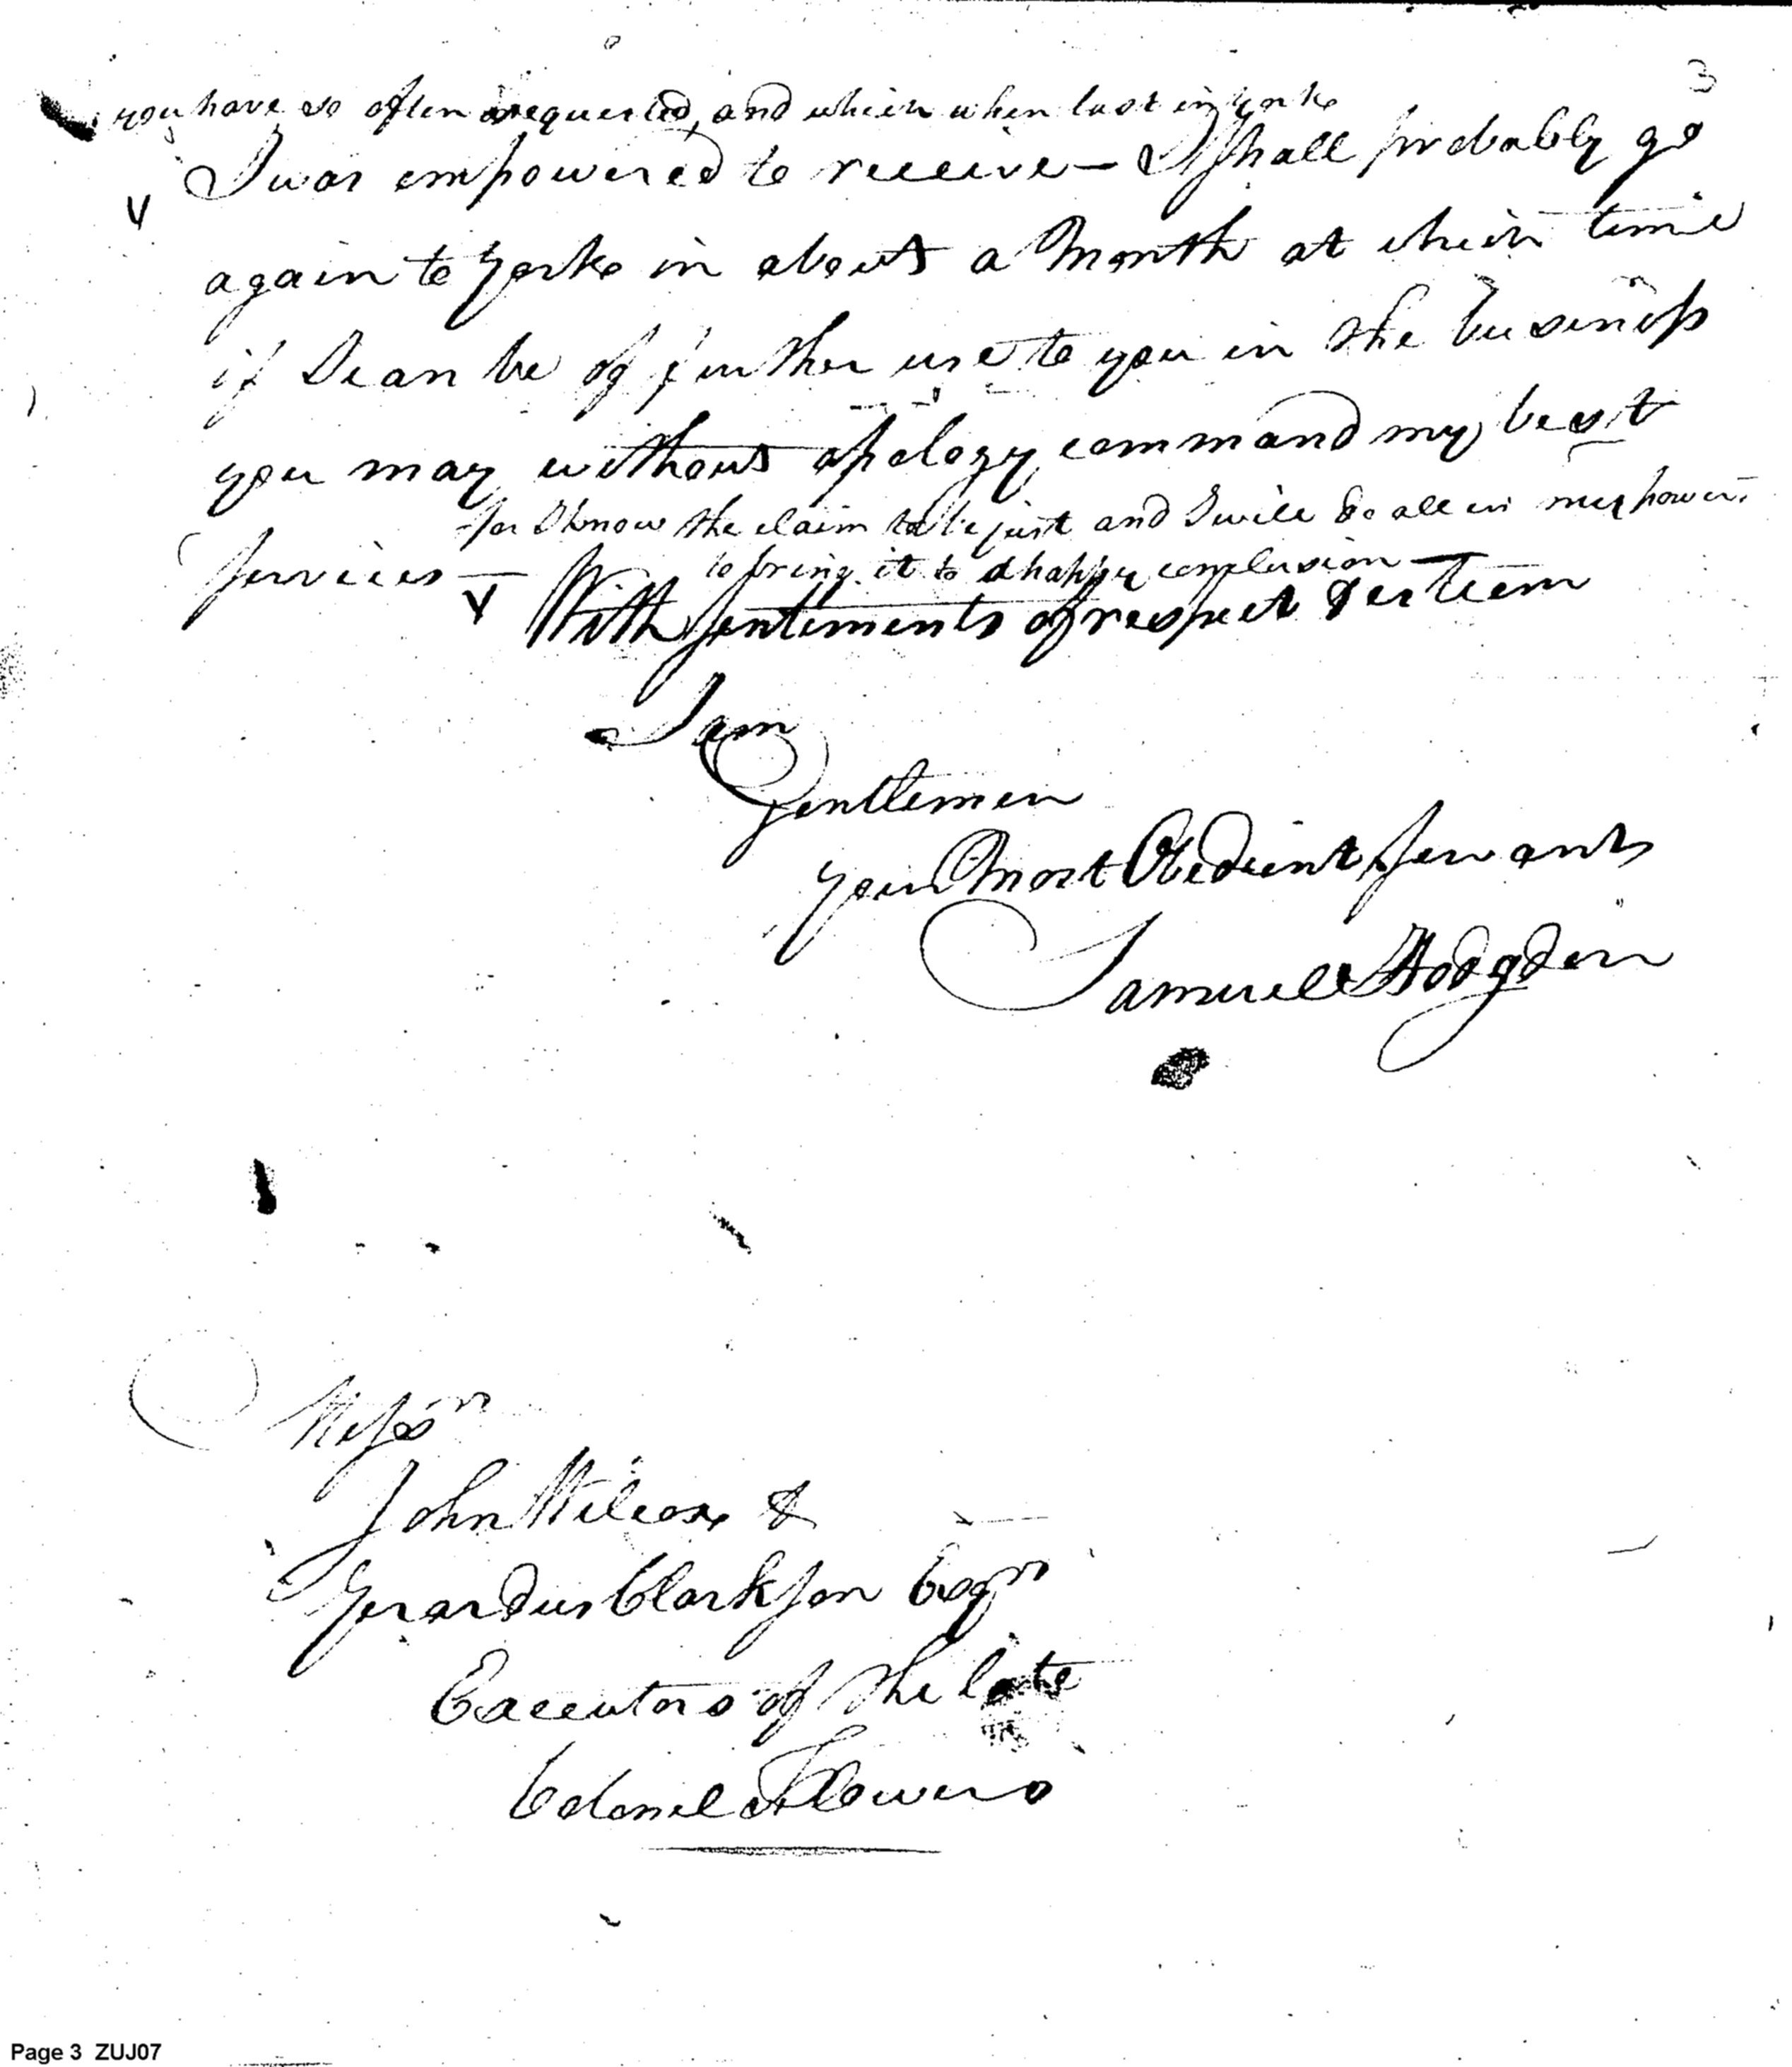 3
you have so often requested, and which when last in Yorke
I was empowered to receive — I shall probably go
again to Yorke in about a Month at which time
if I can be of further use to you in the business
you may without apology command my best
for I know the claim to be just and I will do all in my power
Services — to bring it to a happy conclusion —
With sentiments of respect & esteem
I am
Gentlemen
your Most Obedient Servant
Samuel Hodgdon
Messrs
John Wilcox &
Gerardus Clarkson Esqrs
Executors of the late
Colonel Flowers
Page 3 ZUJ07